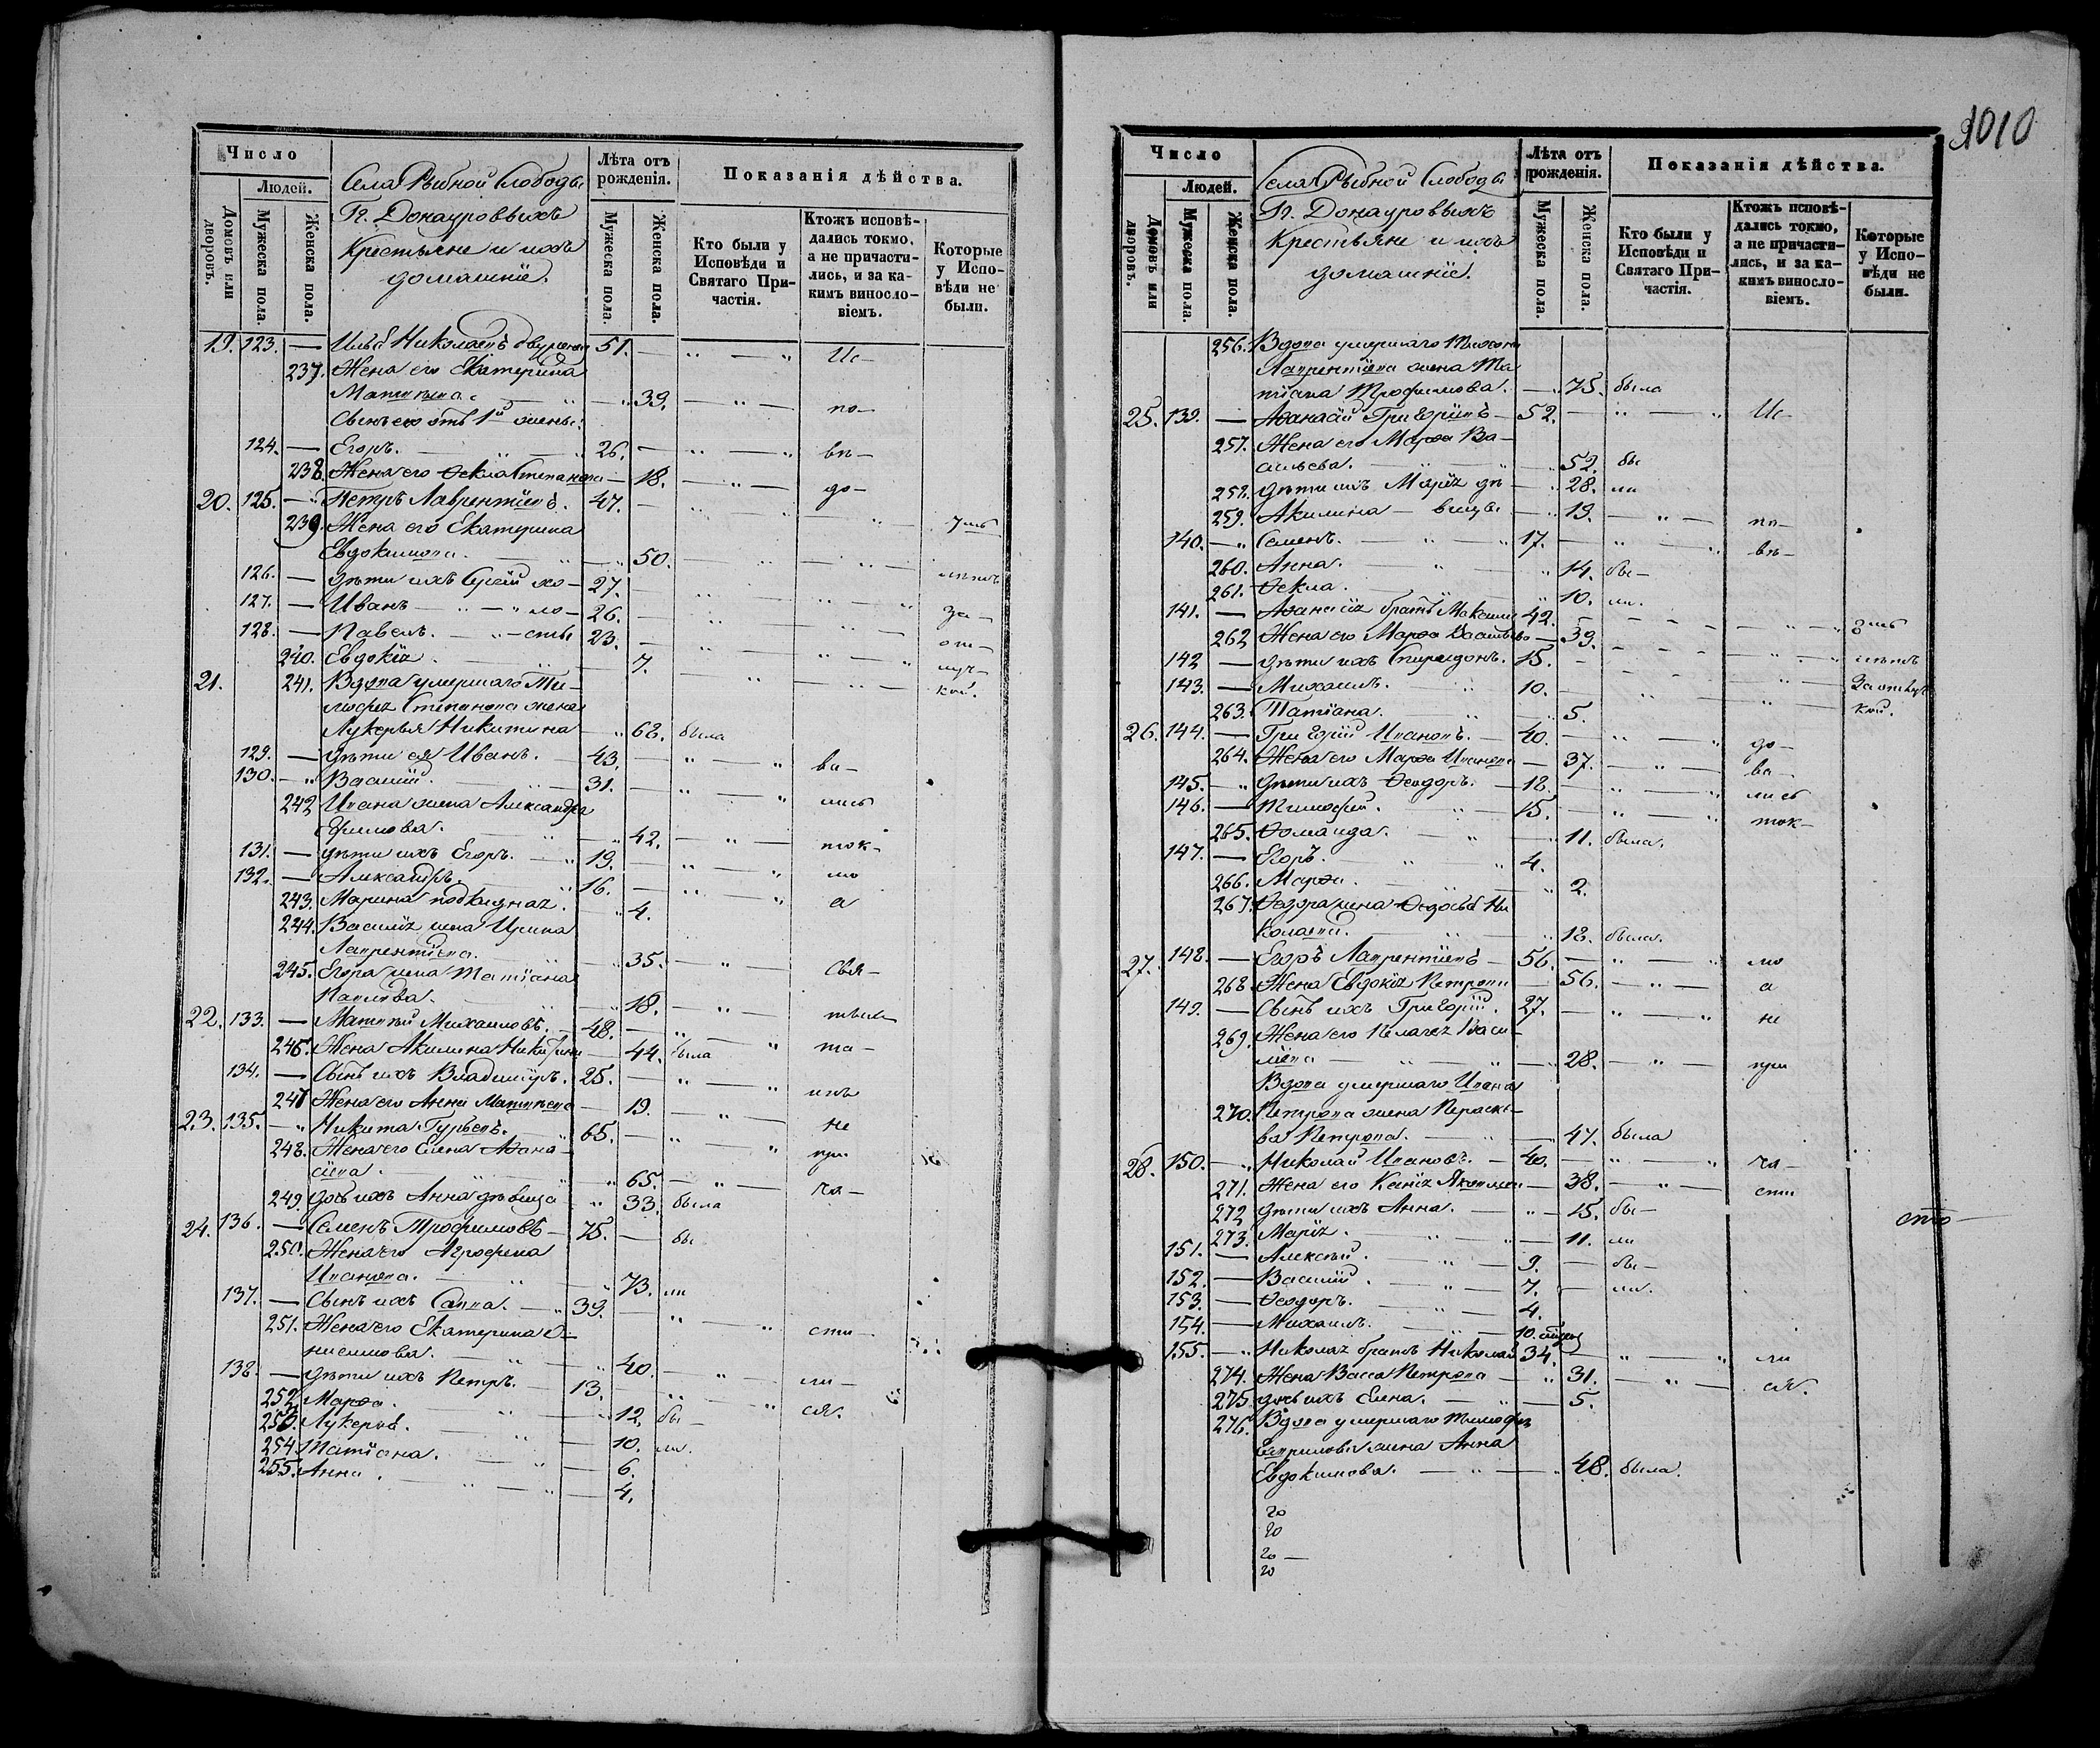 Число
Людей.
Домовъ или дворовъ.
Мужеска пола.
Женска пола.
Села Рыбной Слободы
Гг. Донауровыхъ
Крестьяне и ихъ
домашніе.
Лѣта отъ рожденія.
Мужеска пола.
Женска пола.
Показанія дѣйства.
Кто были у Исповѣди и Святаго Причастія.
Ктожъ исповѣдались токмо, а не причастились, и за какимъ винословіемъ.
Которые у Исповѣди не были.
19. 123. — Илья Николаевъ 51. — Ис—
237. Жена его Екатерина
39. — по—
Сынъ его отъ 1й жены:
124. — Егоръ. 26. — вѣ—
238. Жена его Ѳекла Степанова — 18. — до—
20. 125. — Петръ Лаврентіевъ. 47. —
239. Жена его Екатерина
Евдокимова. 50.
126. — Дѣти ихъ Сергѣй хо— 27. —
127. — Иванъ — ло— 26. — за—
128. — Павелъ. — сты 23. — от—
240. Евдокія. 7. луч—
21. 241. Вдова умершаго Ти— кой.
моѳея Степанова жена
Лукерья Никитина 68. была
129. — Дѣти ея Иванъ. — 43. — ва—
130. — Василій. 31. — лись
242 Ивана жена Александра
Ефимова. 42. — ток—
131. — Дѣти ихъ Егоръ. 19. — мо
132. — Александръ. 16. — а
243. Марина подкидная. 4.
244. Василія жена Ирина
Лаврентіева. 35. — Свя—
245. Егора жена Татіана
Павлова. 18. — тыхъ
22. 133. — Матвѣй Михаиловъ. — 48. — та—
246. Жена Акилина Никитина — 44. была
134. — Сынъ ихъ Владиміръ. 25. — инъ
247 Жена его Анна Матвѣева — 19. — не
23. 135. — Никита Гурьевъ. 65. — при
248. Жена его Елена Аѳана—
сіева. 65. — ча—
249. Дочь ихъ Анна дѣвица 33. была
24. 136. — Семенъ Трофимовъ — 75. — бы
250. Жена его Агрофена
Иванова. 73. ли
137. — Сынъ ихъ Савва. 39. — сти—
251. Жена его Екатерина О—
нисимова. 40. — ли—
138. — Дѣти ихъ Петръ. — 13. — ся.
252 Марѳа. 12. бы—
253. Лукерья. 10. ли.
254. Татіана. 6.
255. Анна. 4.
1010
Число
Людей.
Домовъ или дворовъ.
Мужеска пола.
Женска пола.
Села Рыбной Слободы
Гг. Донауровыхъ
Крестьяне и ихъ
домашніе.
Лѣта отъ рожденія.
Мужеска пола.
Женска пола.
Показанія дѣйства.
Кто были у Исповѣди и Святаго Причастія.
Ктожъ исповѣдались токмо, а не причастились, и за какимъ винословіемъ.
Которые у Исповѣди не были.
256. Вдова умершаго Тихона
Лаврентіева жена Та
тіана Трофимова. — 75. была
25. 139. — Аѳанасій Григоріевъ — 52. — Ис—
257. Жена его Марѳа Ва—
сильева. 52. бы
258. Дѣти ихъ Марія дѣ— 28. ли
259. Акилина — вицы 19. — по—
140. — Семенъ. 17. — вѣ—
260. Анна. 14. бы—
261. Ѳекла. 10. ли.
141. — Аѳанасія братъ Максимъ 42. —
262 Жена его Марѳа Васильева — 39.
142 — Дѣти ихъ Спиридонъ. 15. —
143. — Михаилъ. 10. — За отлуч
263. Татіана. 5. кой.
26. 144. — Григорій Ивановъ. — 40. — до—
264. Жена его Марѳа Иванова — 37. — ва—
145. — Дѣти ихъ Ѳеодоръ. — 18. — лись
146. — Тимоѳей. 15. — ток—
265. Ѳоманда. 11. была.
147. — Егоръ. 4.
266. Марѳа. 2.
267. Ѳедора жена Ѳедосья Ни
колаева. 18. была.
27. 148. — Егоръ Лаврентіевъ — 56. — мо
268. Жена Евдокія Петрова — 56. — а
149. — Сынъ ихъ Григорій. 27. — не
269. Жена его Пелагея Васи—
льева — 28. — при
Вдова умершаго Ивана
270. Петрова жена Параске—
ва Петрова. — 47. была
28. 150. — Николай Ивановъ. — 40. — ча—
271. Жена его Ксенія Яковлева — 38. — сти
272 Дѣти ихъ Анна. 15. бы—
273. Марія. 11. ли
151. — Алексѣй. 9. — бы—
152. — Василій. 7. — ли.
153. — Ѳеодоръ. 4.
154. — Михаилъ. 10.
155. — Николая братъ Николай 34. — ли
274. Жена Васса Петрова 31. — ся.
275 Дочь ихъ Елена. 5.
276. Вдова умершаго Тимоѳея
Гаврилова жена Анна
Евдокимова. 48. была.
сто